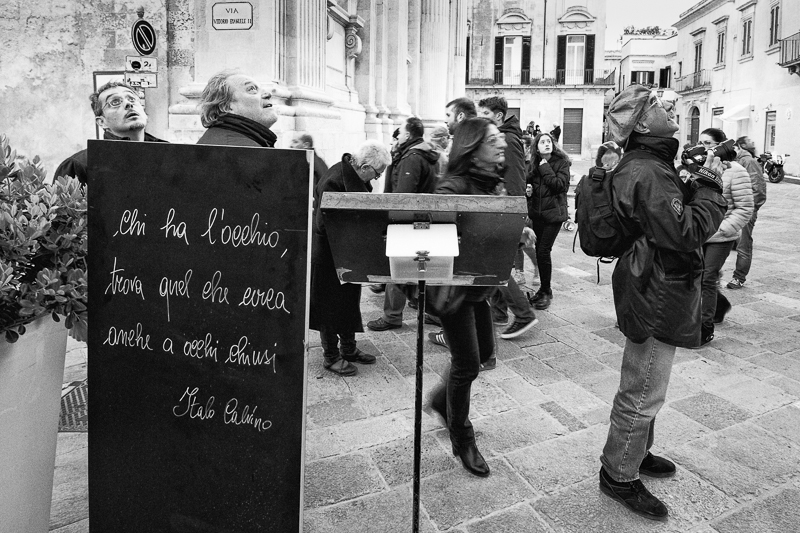 VIA
VITTORIO EMANUELE II
Chi ha l'occhio,
trova quel che cerca
anche a occhi chiusi
Italo Calvino